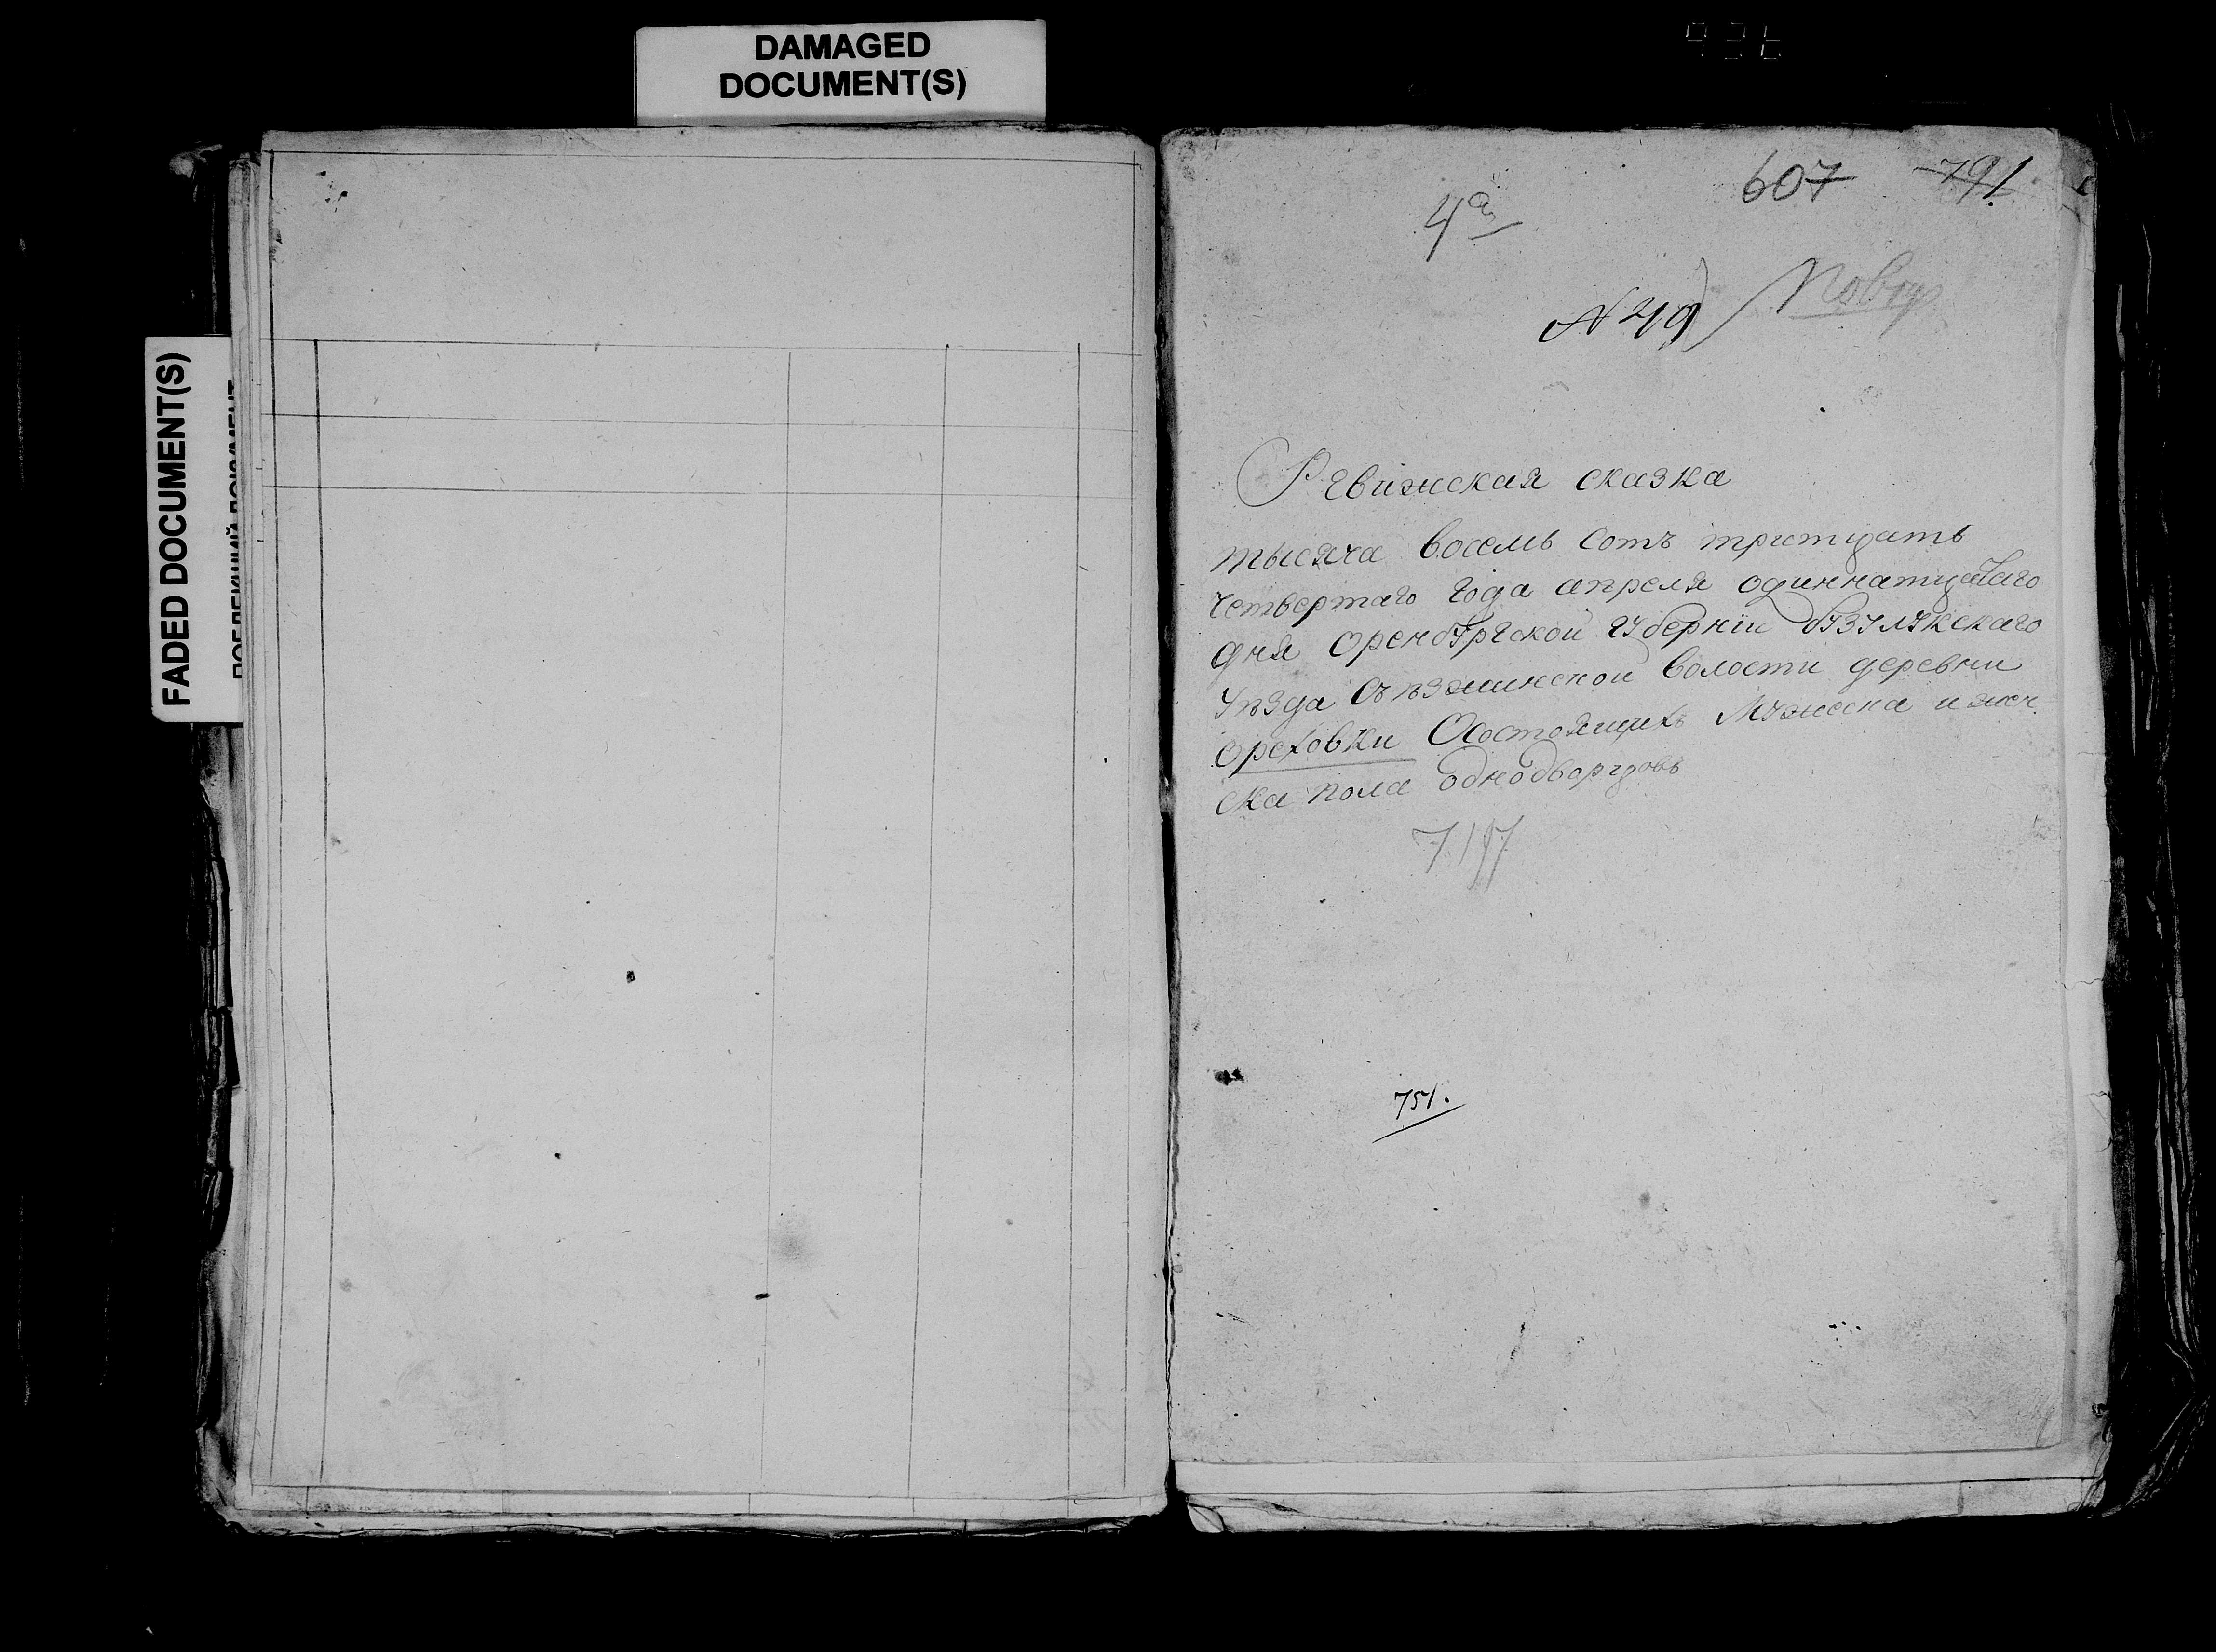 DAMAGED
DOCUMENT(S)
FADED DOCUMENT(S)
607 791
4а
N 49
Повер
Ревижская сказка
тысяча восемь сотъ тритцать
четвертаго года апреля одиннатцатаго
дня Оренбургской губернiи бузулукскаго
уѣзда Съѣзжинской волости деревни
ореховки Состоящихъ Мужеска и жен
ска пола однодворцовъ
751.